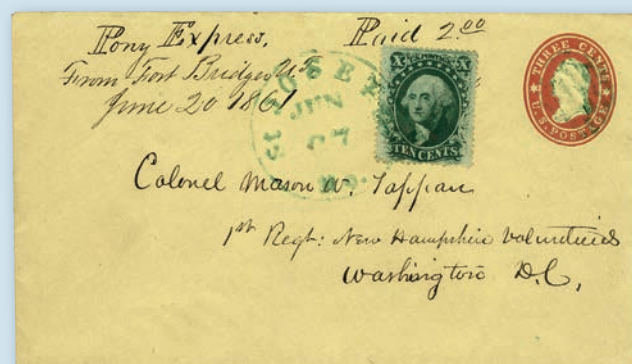 Pony Express, Paid 2.00
From Fort Bridger U.T.
June 20 1861
ST JOSEPH
JUN
27
MO.
X X
TEN CENTS
THREE CENTS
U.S. POSTAGE
Colonel Mason W. Tappan
1st Regt: New Hampshire Volunteers
Washington D.C,